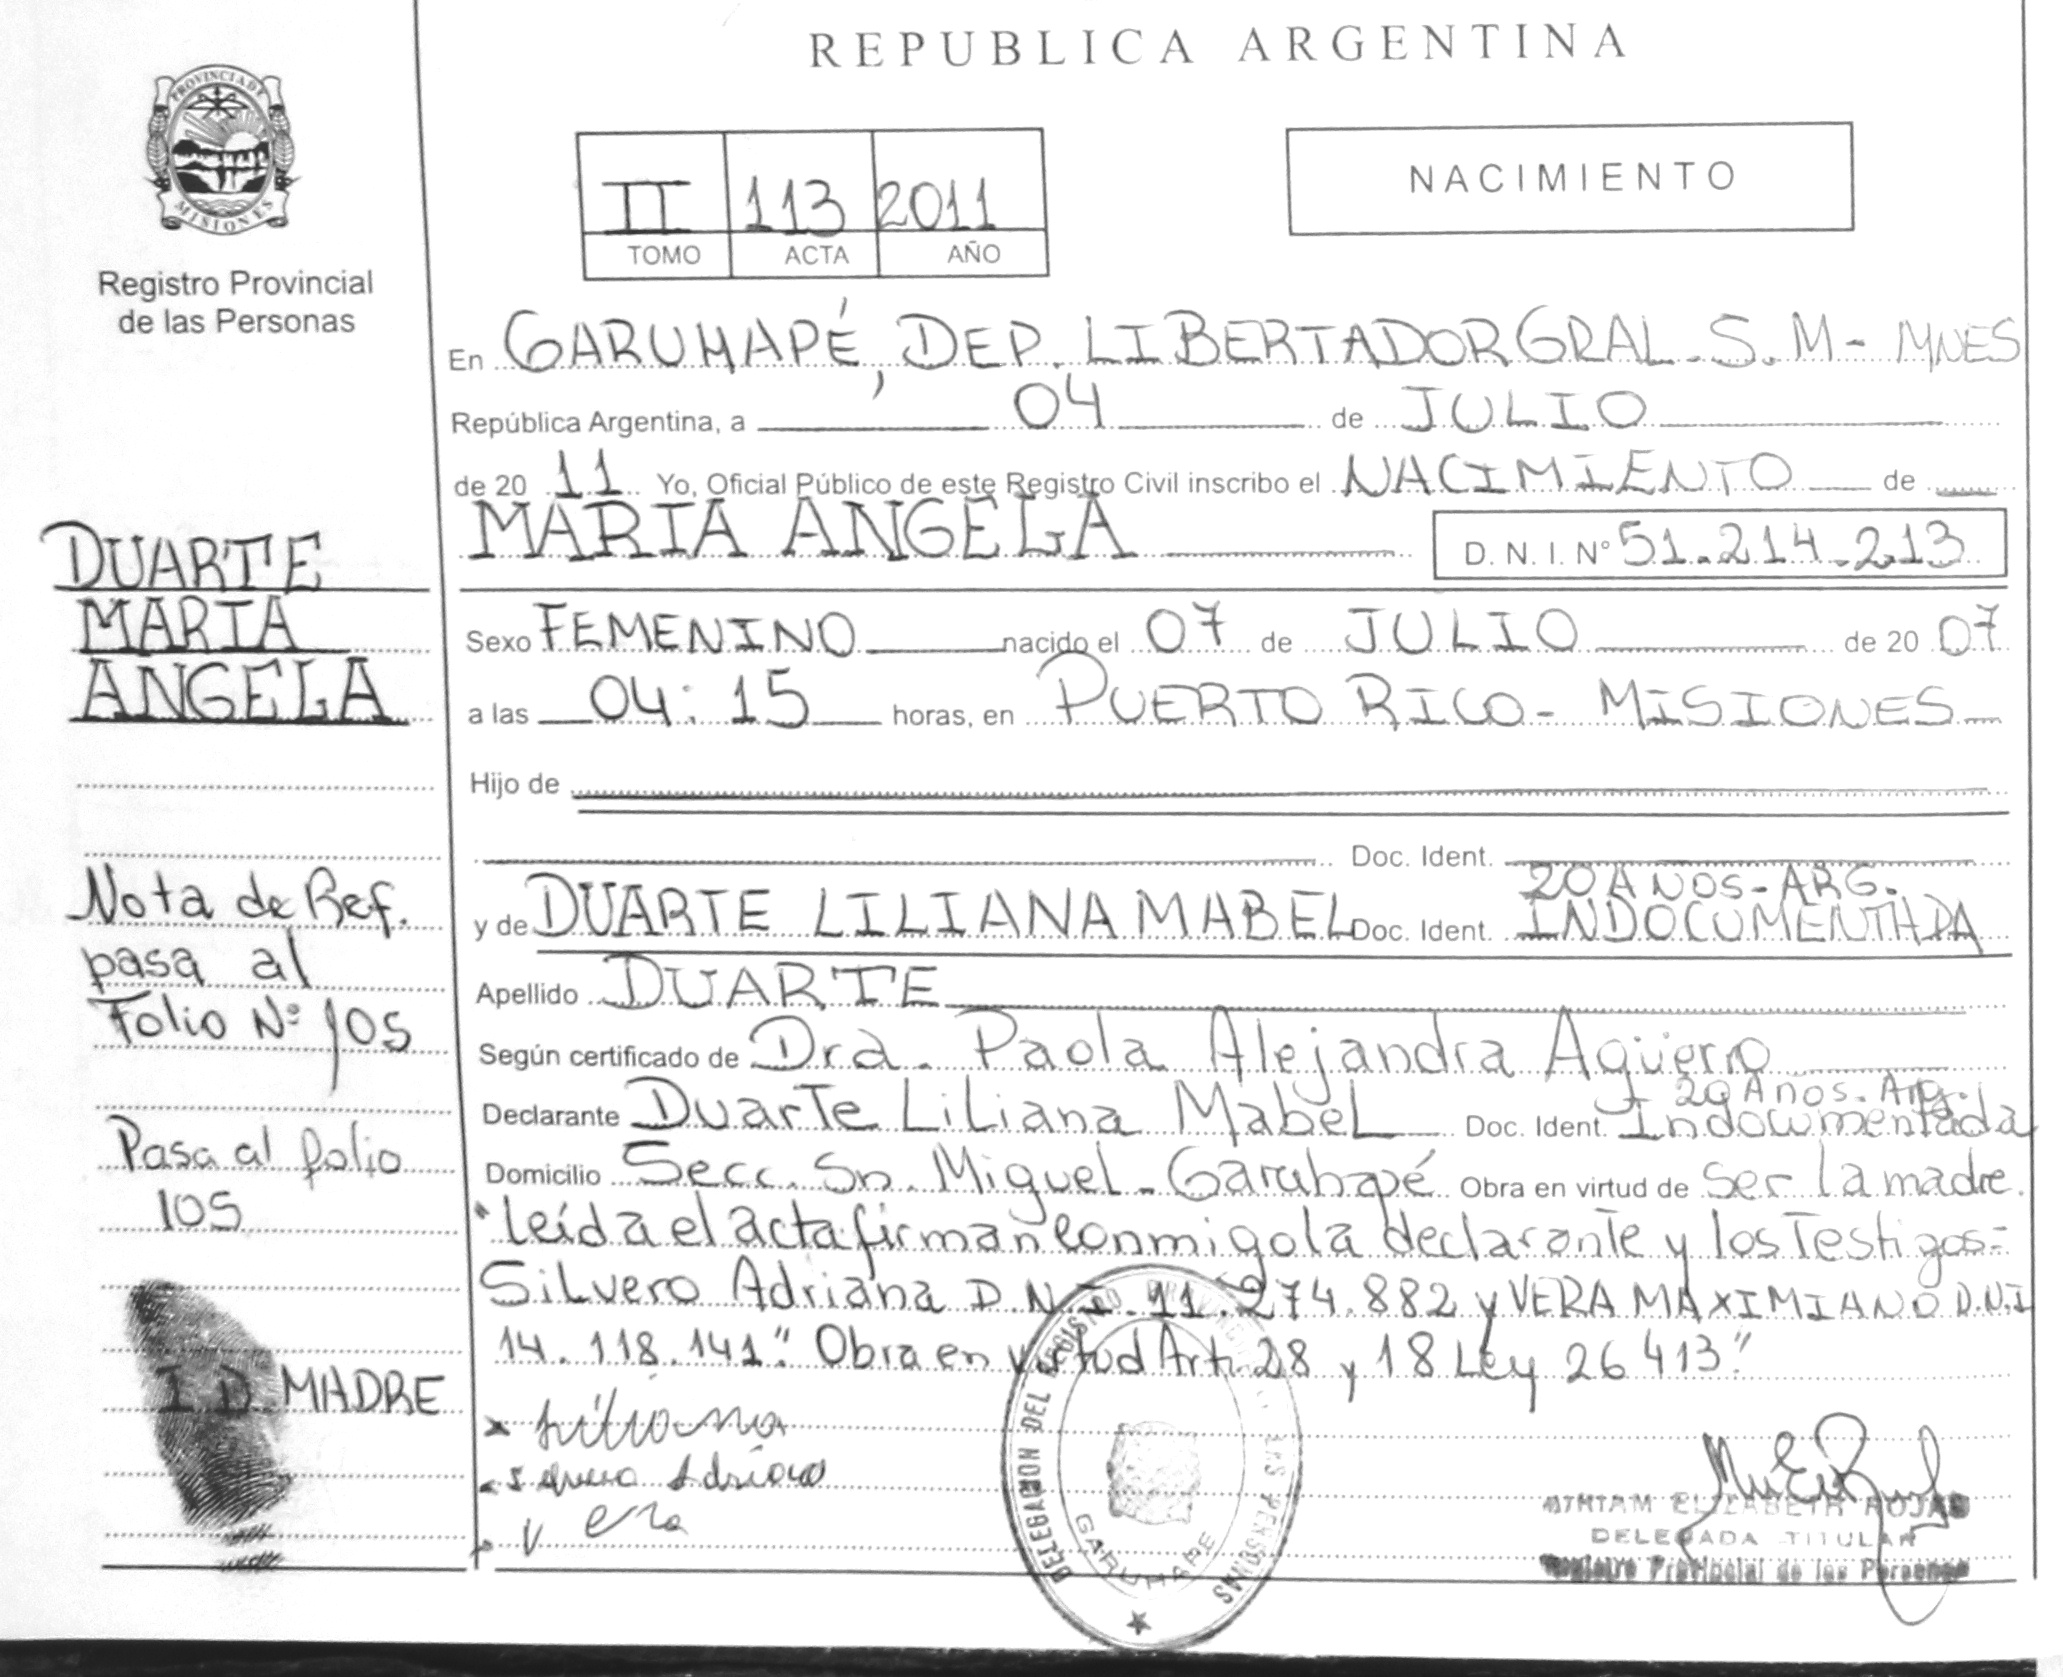 REPUBLICA ARGENTINA
PROVINCIA DE
MISIONES
Registro Provincial
de las Personas
II 113 2011
TOMO ACTA AÑO
NACIMIENTO
En GARUHAPÉ, DEP. LIBERTADOR GRAL. S. M - MNES
República Argentina, a 04 de JULIO
de 20 11 Yo, Oficial Público de este Registro Civil inscribo el NACIMIENTO de
MARIA ANGELA D. N. I. Nº 51.214.213
DUARTE
MARIA
ANGELA
Sexo FEMENINO nacido el 07 de JULIO de 20 07
a las 04:15 horas, en PUERTO RICO - MISIONES
Hijo de
Doc. Ident.
20 AÑOS - ARG.
y de DUARTE LILIANA MABEL Doc. Ident. INDOCUMENTADA
Apellido DUARTE
Según certificado de Dra. Paola Alejandra Agüero
20 Anos - Arg.
Declarante Duarte Liliana Mabel Doc. Ident. Indocumentada
Domicilio Secc. Sn. Miguel - Garuhapé Obra en virtud de ser la madre.
"leída el acta firman conmigo la declarante y los Testigos =
Silvero Adriana D.N.I. 11.274.882 y VERA MAXIMIANO D.N.I
14.118.141." Obra en virtud Art. 28 y 18 Ley 26413."
Nota de Ref.
pasa al
Folio Nº 105
Pasa al folio
105
I D MADRE
x Liliana
Adriana
DELEGACION DEL REGISTRO PROVINCIAL DE LAS PERSONAS
GARUHAPE
MIRIAM ELIZABETH ROJAS
DELEGADA TITULAR
Registro Provincial de las Personas